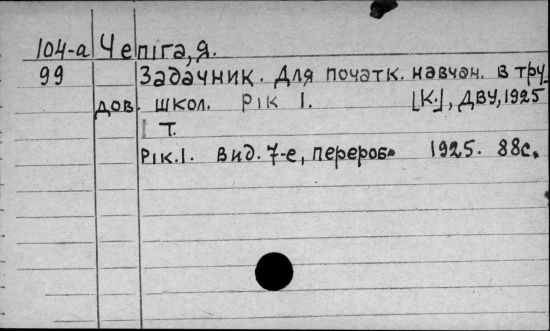 104-а Чепіга, Я.
99 Задачник. Для початк. навчан. в тру
дов. школ. Рік 1. [К.], ДВУ, 1925
1 т.
Рік. 1. Вид. 7-е, перероб. 1925. 88с.